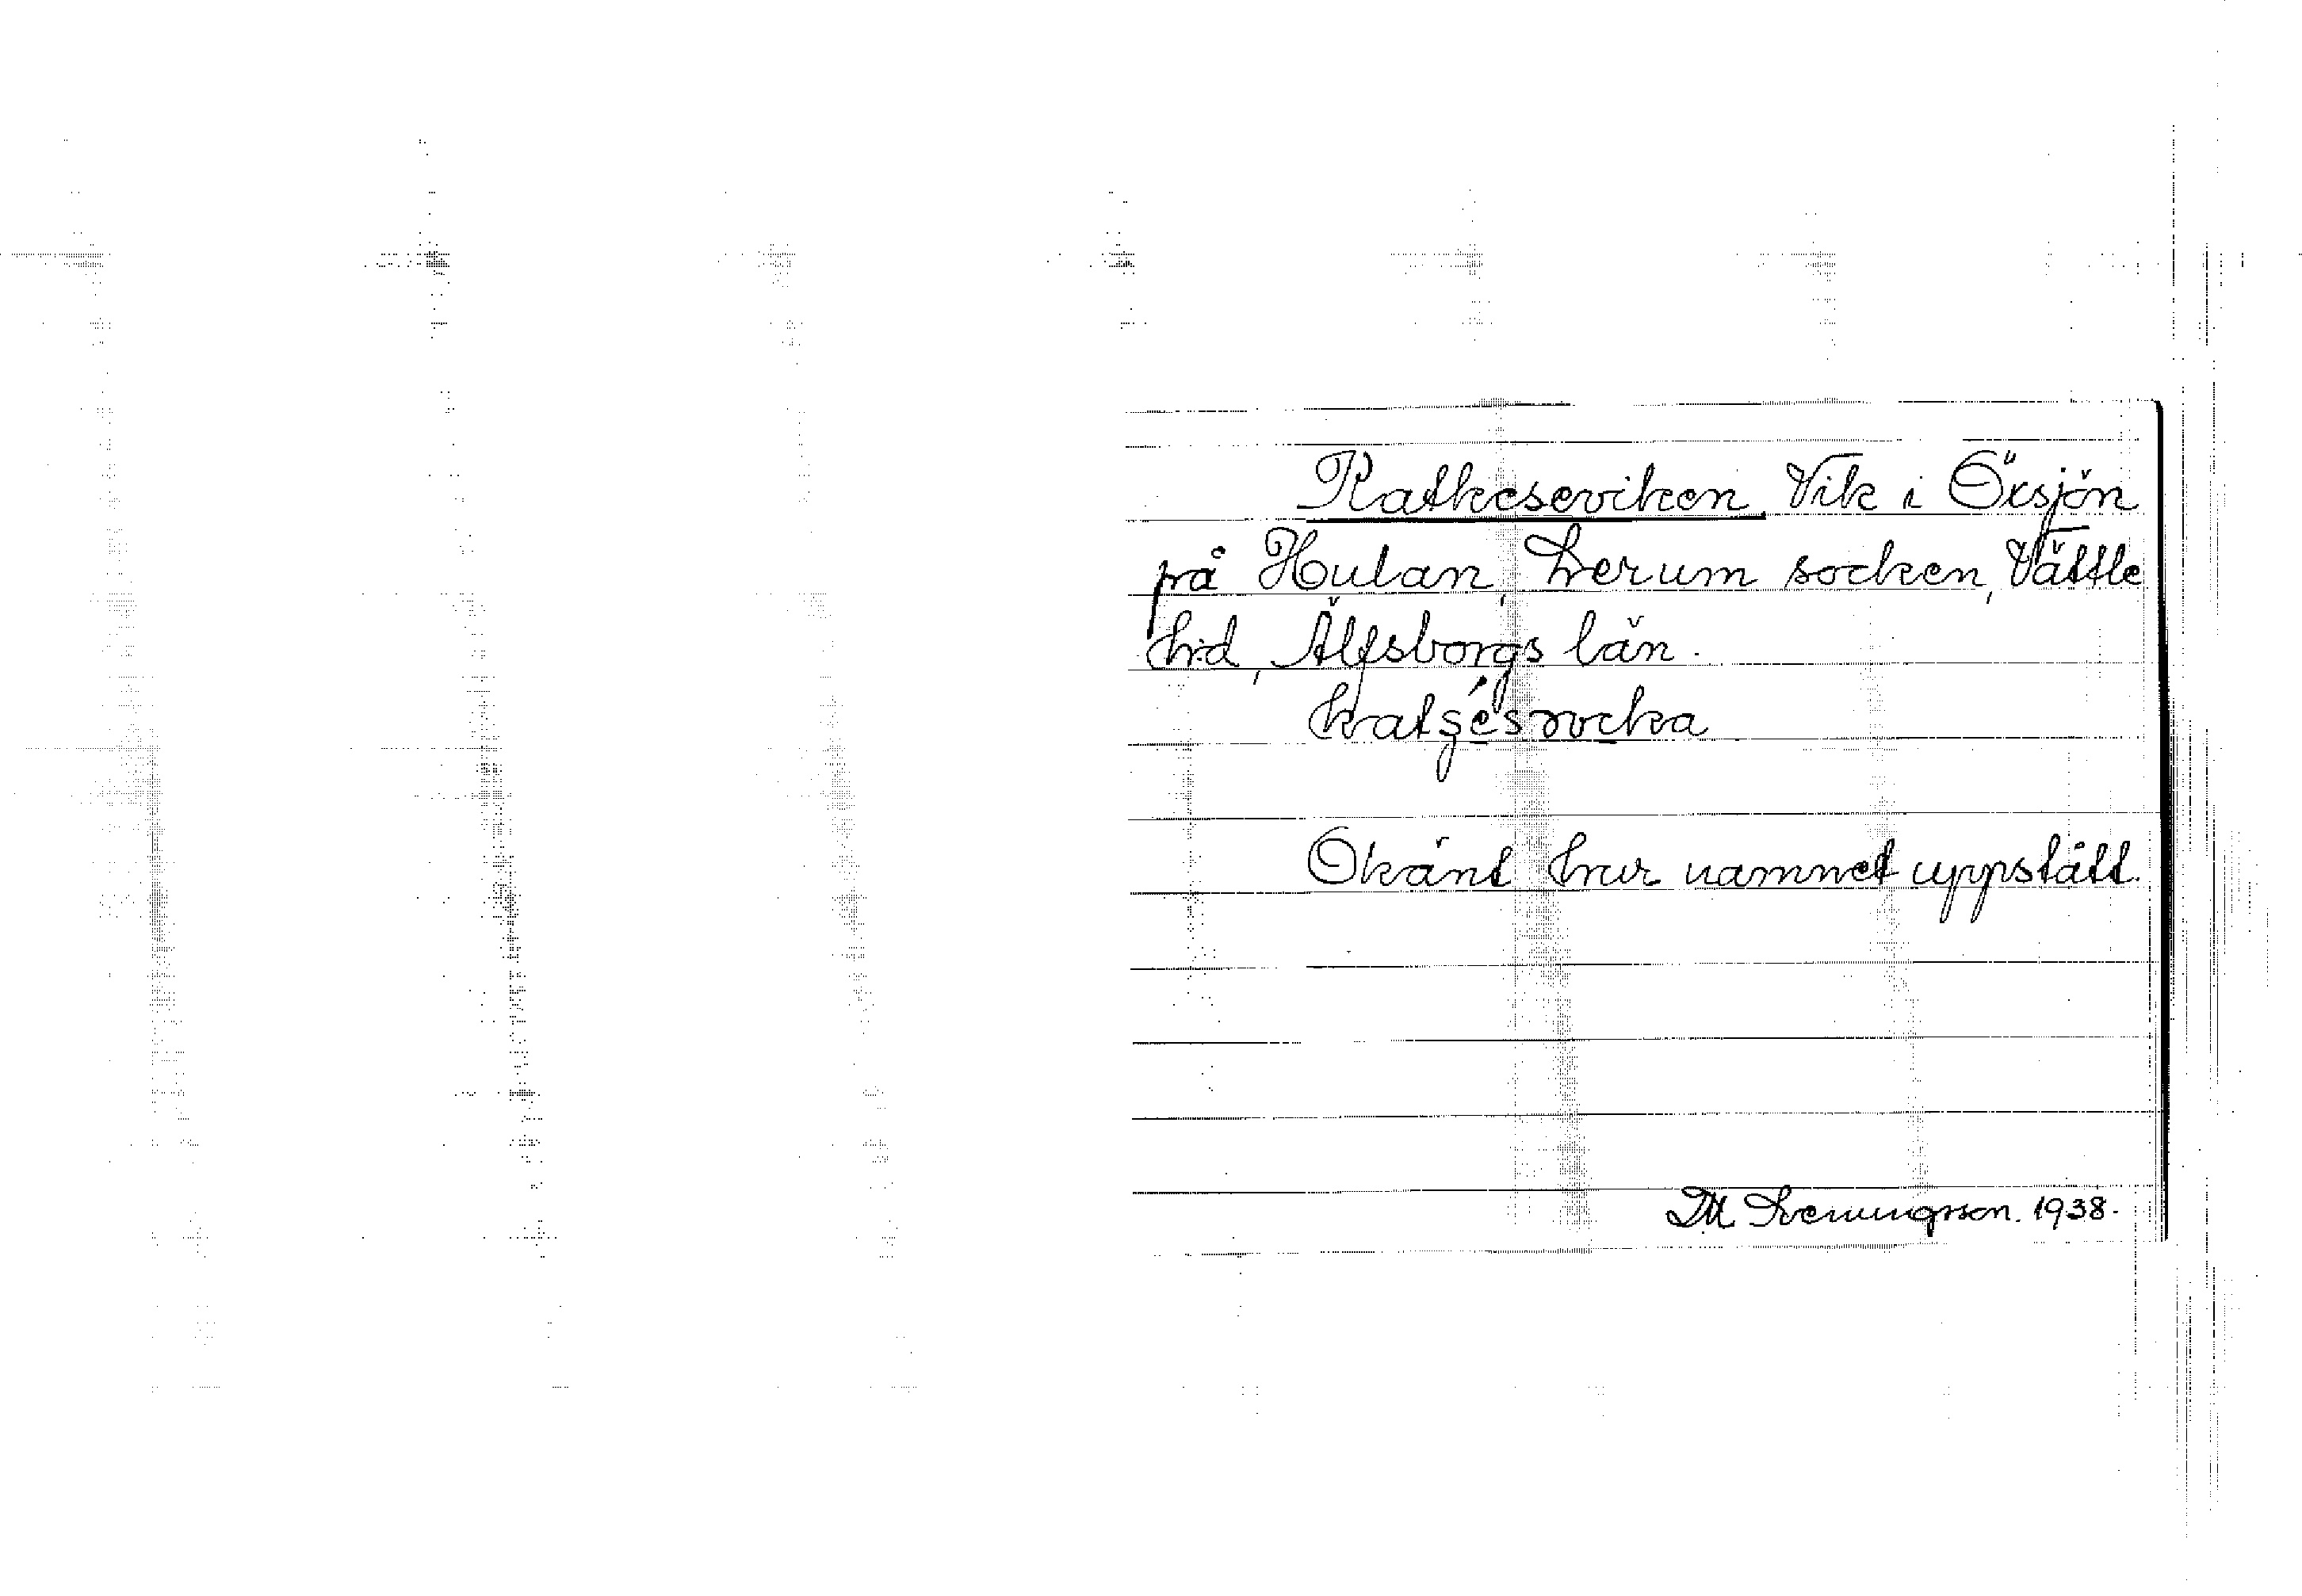 Ratkeseviken, Vik i Öxsjön
på Hulan, Lerum socken, Vättle
hd, Älfsborgs län.
Okänt hur namnet uppstått.
M Svenungsson. 1938.